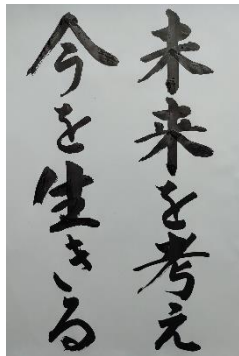 未来を考え
今を生きる